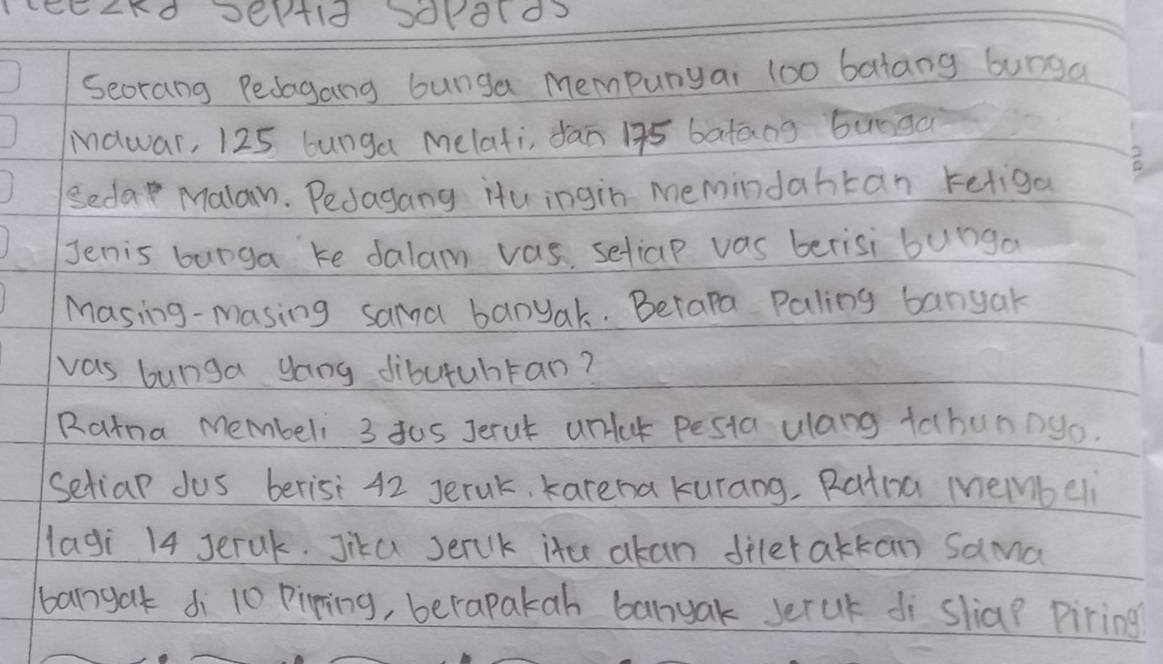 Septia
Seorang Pedagang bunga Mempunyai 100 batang bunga
Mawar, 125 bunga Melati, dan 175 batang bunga
Sedap Malam. Pedagang itu ingin Memindahkan ketiga
Jenis bunga ke dalam vas. setiap vas berisi bunga
Masing-masing sama banyak. Berapa Paling banyak
vas bunga yang dibutuhkan?
Ratna Membeli 3 dus Jeruk untuk Pesta ulang tahunnya.
Setiap dus berisi 42 Jeruk. karena kurang, Ratna Membeli
lagi 14 Jeruk. Jika Jeruk itu akan diletakkan Sama
banyak di 10 Piring, berapakah banyak Jeruk di stiap Piring